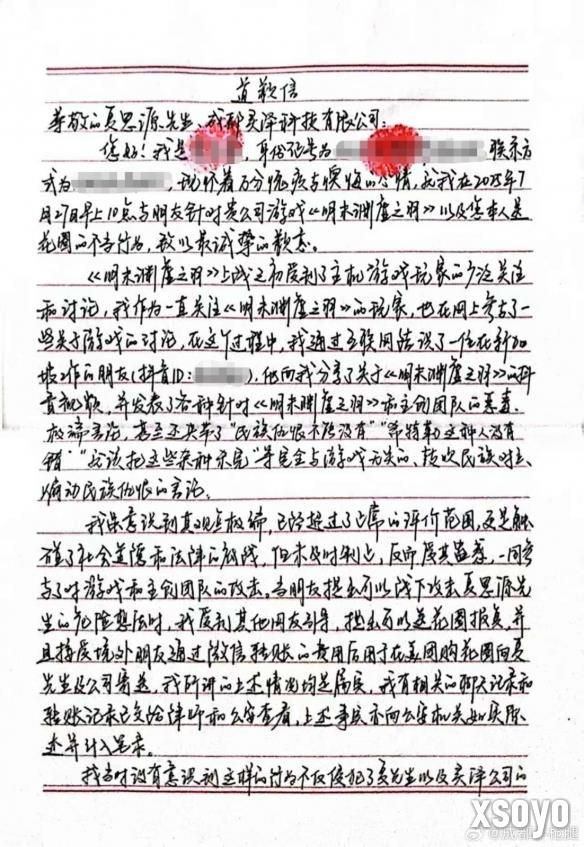 道歉信
尊敬的夏思源先生、成都灵泽科技有限公司:
您好!我是 ,身份证号为 ,联系方
式为 ,现怀着万分愧疚与懊悔的心情,就我在2025年7
月27日早上10点与朋友针对贵公司游戏《明末渊虚之羽》以及您本人送
花圈的不当行为,致以最诚挚的歉意。
《明末渊虚之羽》上线之初受到了主机游戏玩家的广泛关注
和讨论,我作为一直关注《明末渊虚之羽》的玩家,也在网上参与了一
些关于游戏的讨论,在这个过程中,我通过互联网结识了一位在新加
坡工作的朋友(抖音ID: ),他向我分享了关于《明末渊虚之羽》的抖
音视频,并发表了各种针对《明末渊虚之羽》和主创团队的恶毒、
极端言论,甚至还夹带了“民族仇恨不能没有”“希特勒这种人没有
错”“应该把这些杂种杀完”等完全与游戏无关的、挑火民族对立、
煽动民族仇恨的言论。
我虽意识到其观点极端,已经超过了正常的评价范围,更是触
碰了社会道德和法律的底线,但未及时制止,反而受其蛊惑,一同参
与了对游戏和主创团队的攻击。当朋友提出可以线下攻击夏思源先
生的危险想法时,我受到其他网友引导,提出可以送花圈报复,并
且接受境外朋友通过微信转账的费用后用于在美团购花圈向夏
先生及公司寄送。我所讲的上述情况均是属实,我有相关的聊天记录和
转账记录已交给律师和公安查看,上述事实亦向公安机关如实陈
述并计入笔录。
我当时没有意识到这样的行为不仅侵犯了夏先生以及灵泽公司的
XSOYO